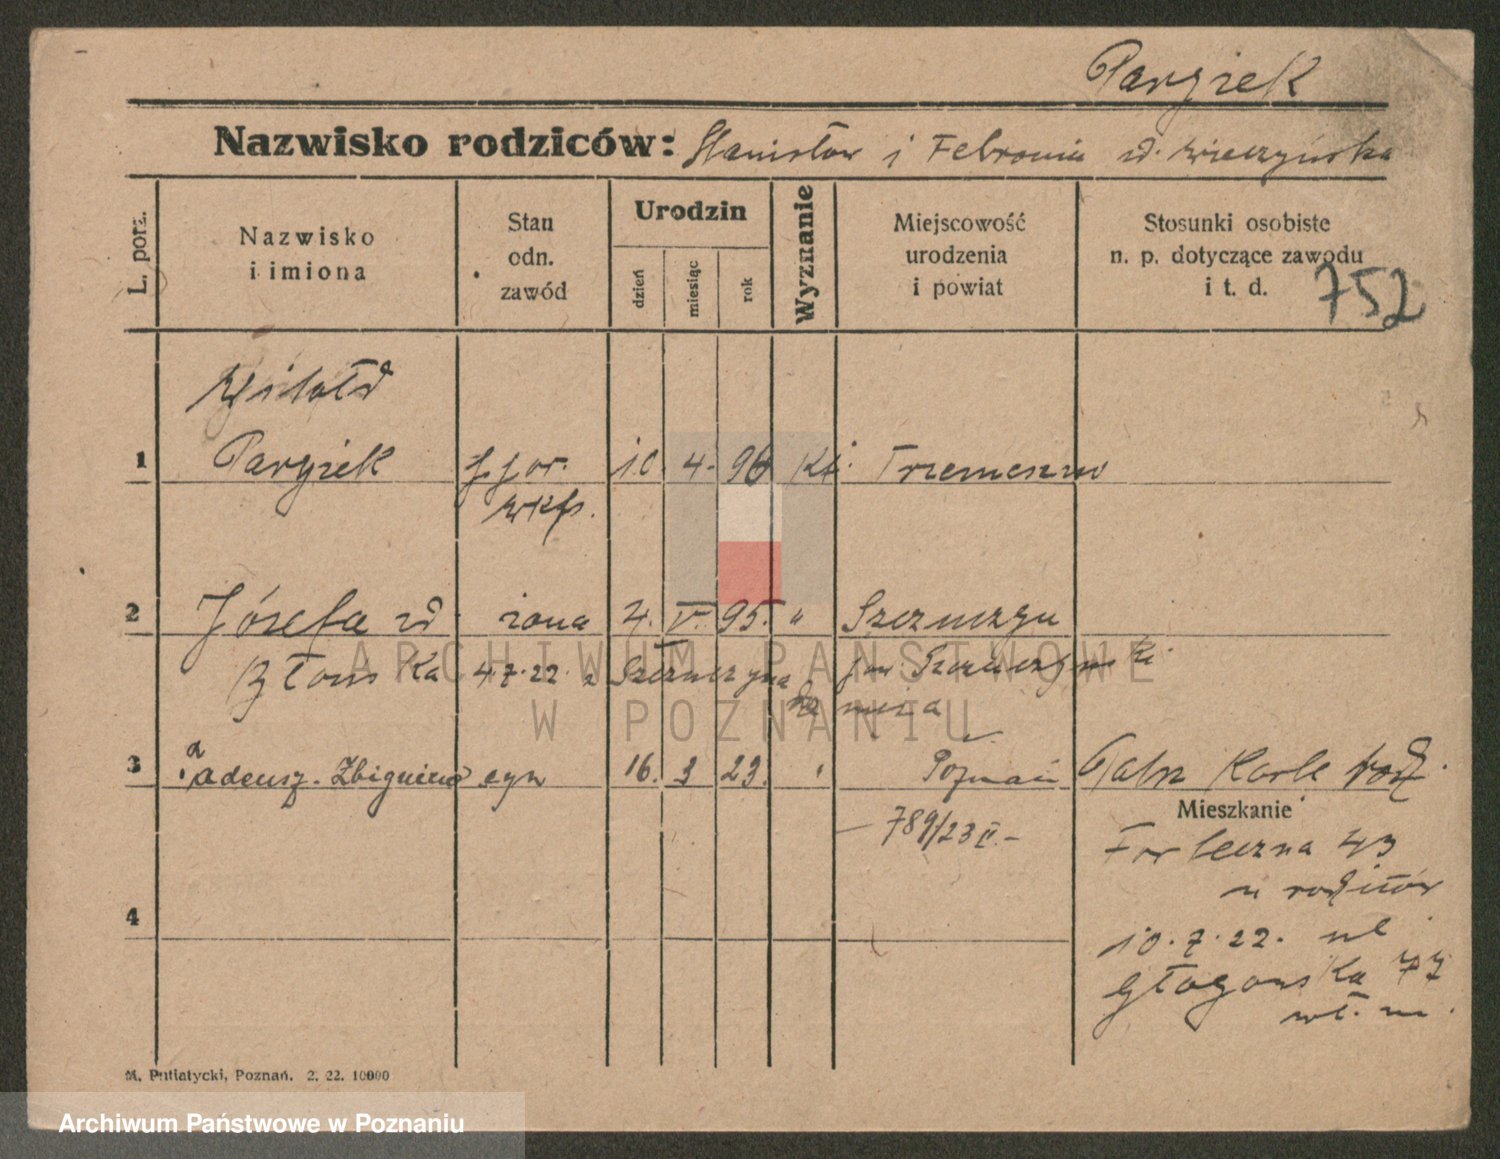 Pargiek
Nazwisko rodziców: Stanisław i Febronia zd. Wieczyńska
L. porz.
Nazwisko
i imiona
Stan
odn.
zawód
Urodzin
dzień
miesiąc
rok
Wyznanie
Miejscowość
urodzenia
i powiat
Stosunki osobiste
n. p. dotyczące zawodu
i t. d.
752
Witołd
1 Pargiek 10. 4. 96 kt. Trzemeszno
2 Józefa zd żona 4. V. 95. " Szczuczyn
4.7.22. z Szczuczyna
3 Tadeusz. Zbigniew syn 16. 3 23. " Poznań
Mieszkanie
789/23 II.-
Forteczna 43
u rodziców
4
10.7.22. ul
Głogowska 77
M. Putiatycki, Poznań. 2. 22. 10000
ARCHIWUM PAŃSTWOWE
W POZNANIU
Archiwum Państwowe w Poznaniu